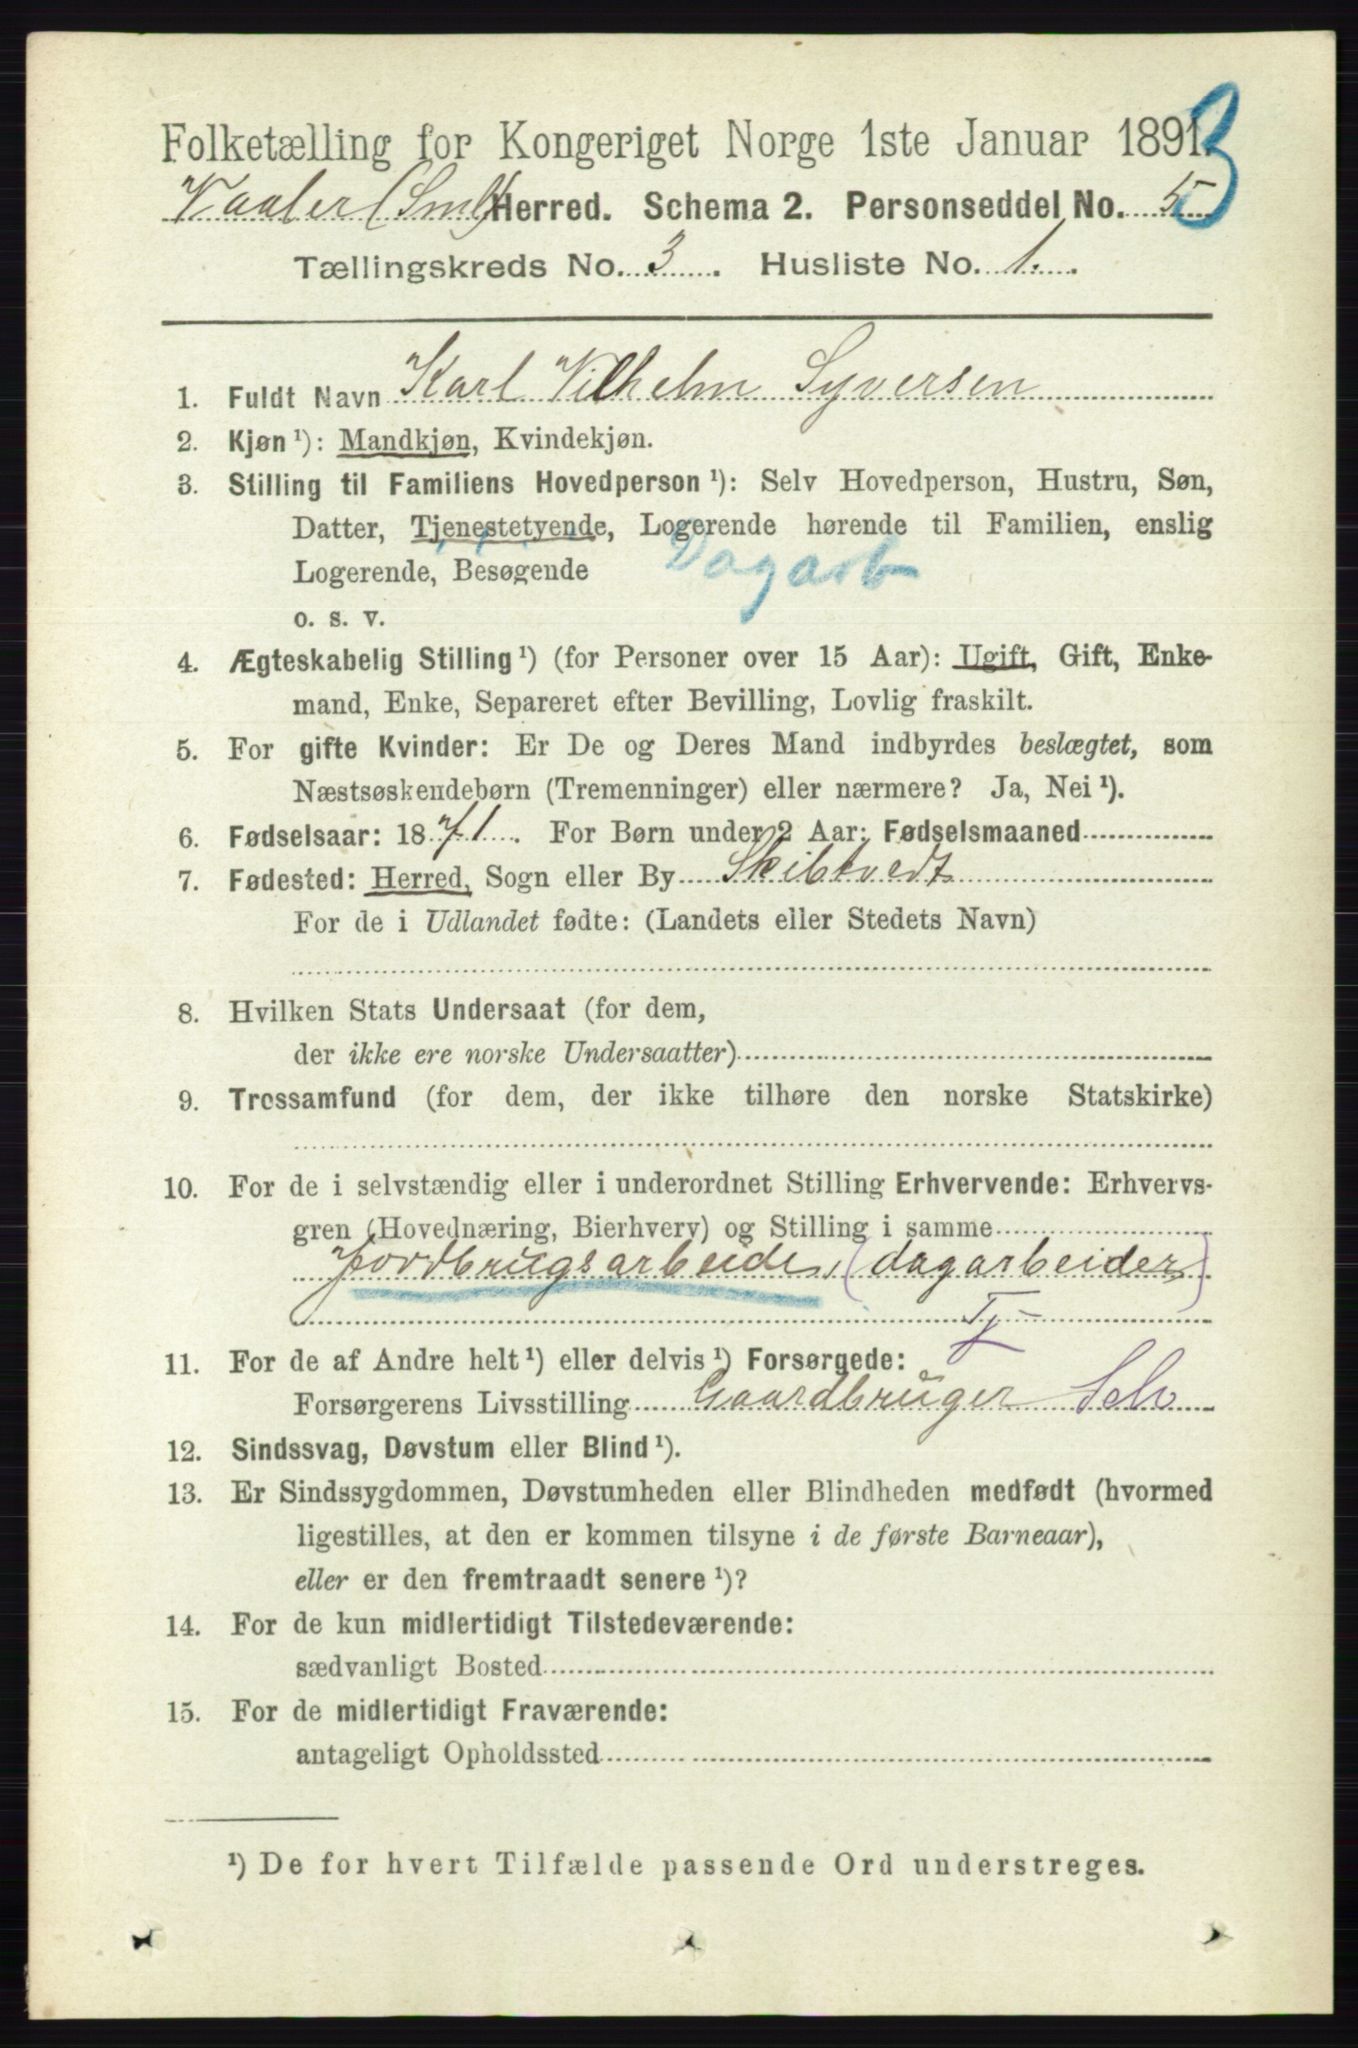 Folketælling for Kongeriget Norge 1ste Januar 1891.
3
Vaaler (Sml) Herred. Schema 2. Personseddel No. 5
Tællingskreds No. 3. Husliste No. 1.
1. Fuldt Navn Karl Vilhelm Syversen
2. Kjøn ¹): Mandkjøn, Kvindekjøn.
3. Stilling til Familiens Hovedperson ¹): Selv Hovedperson, Hustru, Søn,
Datter, Tjenestetyende, Logerende hørende til Familien, enslig
Logerende, Besøgende Dagarb
o. s. v.
4. Ægteskabelig Stilling ¹) (for Personer over 15 Aar): Ugift, Gift, Enke-
mand, Enke, Separeret efter Bevilling, Lovlig fraskilt.
5. For gifte Kvinder: Er De og Deres Mand indbyrdes beslægtet, som
Næstsøskendebørn (Tremenninger) eller nærmere? Ja, Nei ¹).
6. Fødselsaar: 1871. For Børn under 2 Aar: Fødselsmaaned
7. Fødested: Herred, Sogn eller By Skibtvedt
For de i Udlandet fødte: (Landets eller Stedets Navn)
8. Hvilken Stats Undersaat (for dem,
der ikke ere norske Undersaatter)
9. Trossamfund (for dem, der ikke tilhøre den norske Statskirke)
10. For de i selvstændig eller i underordnet Stilling Erhvervende: Erhvervs-
gren (Hovednæring, Bierhverv) og Stilling i samme
Jordbrugsarbeide, (dagarbeider)
Tj=
11. For de af Andre helt ¹) eller delvis ¹) Forsørgede:
Forsørgerens Livsstilling Gaardbruger Selv
12. Sindssvag, Døvstum eller Blind ¹).
13. Er Sindssygdommen, Døvstumheden eller Blindheden medfødt (hvormed
ligestilles, at den er kommen tilsyne i de første Barneaar),
eller er den fremtraadt senere ¹)?
14. For de kun midlertidigt Tilstedeværende:
sædvanligt Bosted
15. For de midlertidigt Fraværende:
antageligt Opholdssted
¹) De for hvert Tilfælde passende Ord understreges.